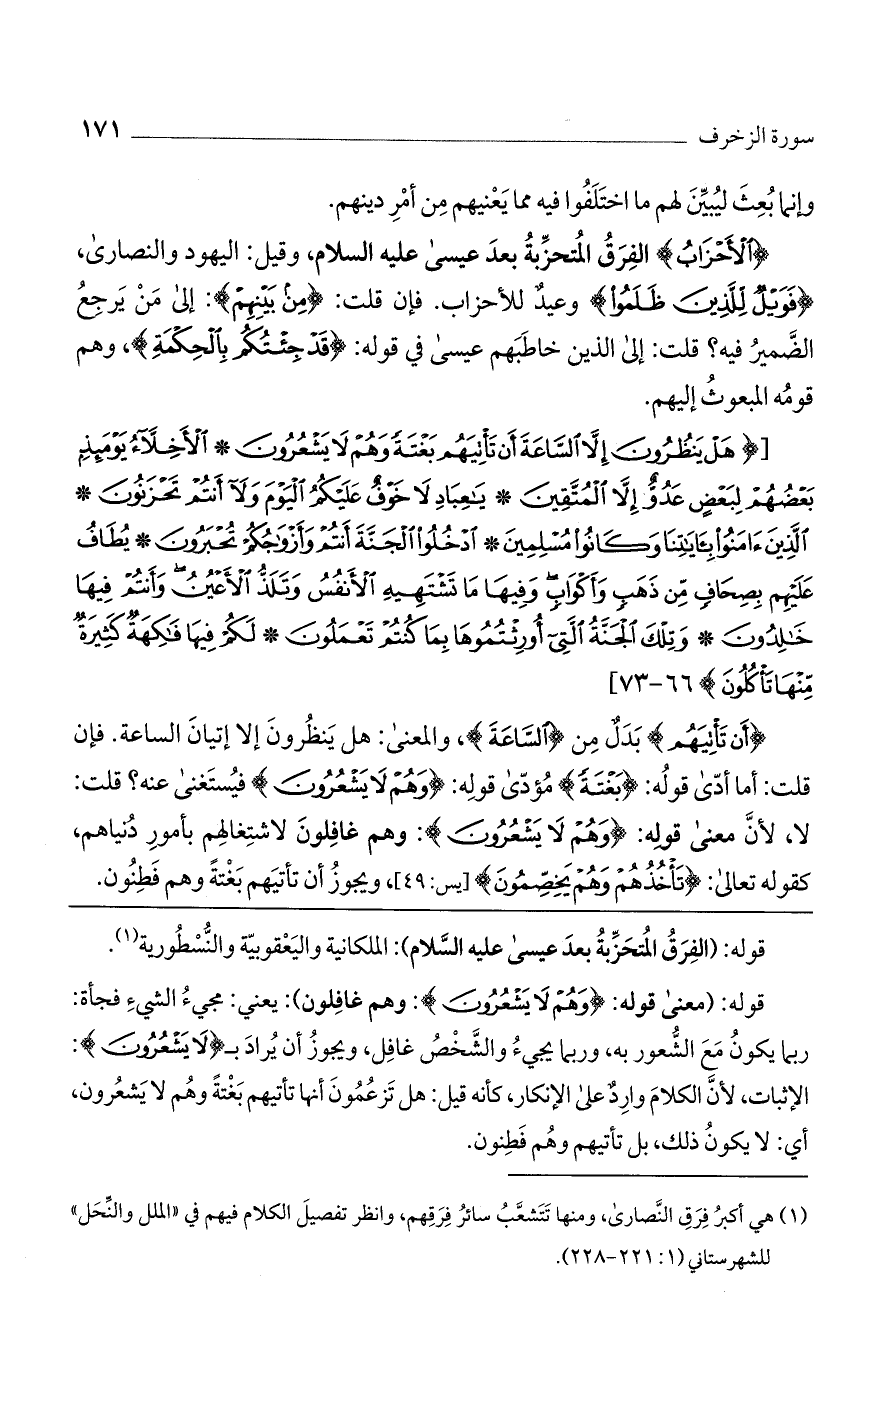 سورة الزخرف ١٧١
وإنما بُعِثَ ليُبيِّنَ لهم ما اختَلَفُوا فيه مما يَعْنيهم مِن أمْرِ دينهم.
﴿ٱلۡأَحۡزَابُ﴾ الفِرَقُ المُتحزِّبةُ بعدَ عيسىٰ عليه السلام، وقيل: اليهود والنصارىٰ،
﴿فَوَيۡلٌ لِّلَّذِينَ ظَلَمُواْ﴾ وعيدٌ للأحزاب. فإن قلت: ﴿مِنۢ بَيۡنِهِمۡ﴾: إلىٰ مَنْ يَرجِعُ
الضَّميرُ فيه؟ قلت: إلىٰ الذين خاطَبَهم عيسىٰ في قوله: ﴿قَدۡ جِئۡتُكُم بِٱلۡحِكۡمَةِ﴾، وهم
قومُه المبعوثُ إليهم.
[﴿هَلۡ يَنظُرُونَ إِلَّا ٱلسَّاعَةَ أَن تَأۡتِيَهُم بَغۡتَةً وَهُمۡ لَا يَشۡعُرُونَ * ٱلۡأَخِلَّآءُ يَوۡمَئِذٍۭ
بَعۡضُهُمۡ لِبَعۡضٍ عَدُوٌّ إِلَّا ٱلۡمُتَّقِينَ * يَٰعِبَادِ لَا خَوۡفٌ عَلَيۡكُمُ ٱلۡيَوۡمَ وَلَآ أَنتُمۡ تَحۡزَنُونَ *
ٱلَّذِينَ ءَامَنُواْ بِـَٔايَٰتِنَا وَكَانُواْ مُسۡلِمِينَ * ٱدۡخُلُواْ ٱلۡجَنَّةَ أَنتُمۡ وَأَزۡوَٰجُكُمۡ تُحۡبَرُونَ * يُطَافُ
عَلَيۡهِم بِصِحَافٍ مِّن ذَهَبٍ وَأَكۡوَابٍۖ وَفِيهَا مَا تَشۡتَهِيهِ ٱلۡأَنفُسُ وَتَلَذُّ ٱلۡأَعۡيُنُۖ وَأَنتُمۡ فِيهَا
خَٰلِدُونَ * وَتِلۡكَ ٱلۡجَنَّةُ ٱلَّتِيٓ أُورِثۡتُمُوهَا بِمَا كُنتُمۡ تَعۡمَلُونَ * لَكُمۡ فِيهَا فَٰكِهَةٌ كَثِيرَةٌ
مِّنۡهَا تَأۡكُلُونَ﴾ ٦٦-٧٣]
﴿أَن تَأۡتِيَهُم﴾ بَدَلٌ مِن ﴿ٱلسَّاعَةَ﴾، والمعنىٰ: هل يَنظُرونَ إلا إتيانَ الساعة. فإن
قلت: أما أدّىٰ قولُه: ﴿بَغۡتَةً﴾ مُؤدّىٰ قولِه: ﴿وَهُمۡ لَا يَشۡعُرُونَ﴾ فيُستَغنىٰ عنه؟ قلت:
لا، لأنَّ معنىٰ قولِه: ﴿وَهُمۡ لَا يَشۡعُرُونَ﴾: وهم غافِلونَ لاشتِغالِهم بأمورِ دُنياهم،
كقوله تعالىٰ: ﴿تَأۡخُذُهُمۡ وَهُمۡ يَخِصِّمُونَ﴾ [يس: ٤٩]، ويجوزُ أن تأتيَهم بَغْتةً وهم فَطِنُون.
قوله: (الفِرَقُ المُتحَزِّبةُ بعدَ عيسىٰ عليه السَّلام): الملكانية واليَعْقوبيّة والنُّسْطُورية(١).
قوله: (معنىٰ قوله: ﴿وَهُمۡ لَا يَشۡعُرُونَ﴾: وهم غافِلون): يعني: مجيءُ الشيءِ فجأة:
ربما يكونُ مَعَ الشُّعور به، وربما يجيءُ والشَّخْصُ غافِل، ويجوزُ أن يُرادَ بـ﴿لَا يَشۡعُرُونَ﴾:
الإثبات، لأنَّ الكلامَ وارِدٌ علىٰ الإنكار، كأنه قيل: هل تَزعُمُونَ أنها تأتيهم بَغْتةً وهُم لا يَشعُرون،
أي: لا يكونُ ذلك، بل تأتيهم وهُم فَطِنون.
(١) هي أكبرُ فِرَقِ النَّصارىٰ، ومنها تَتَشعَّبُ سائرُ فِرَقِهم، وانظر تفصيلَ الكلام فيهم في «الملل والنِّحَل»
للشهرستاني (١: ٢٢١-٢٢٨).